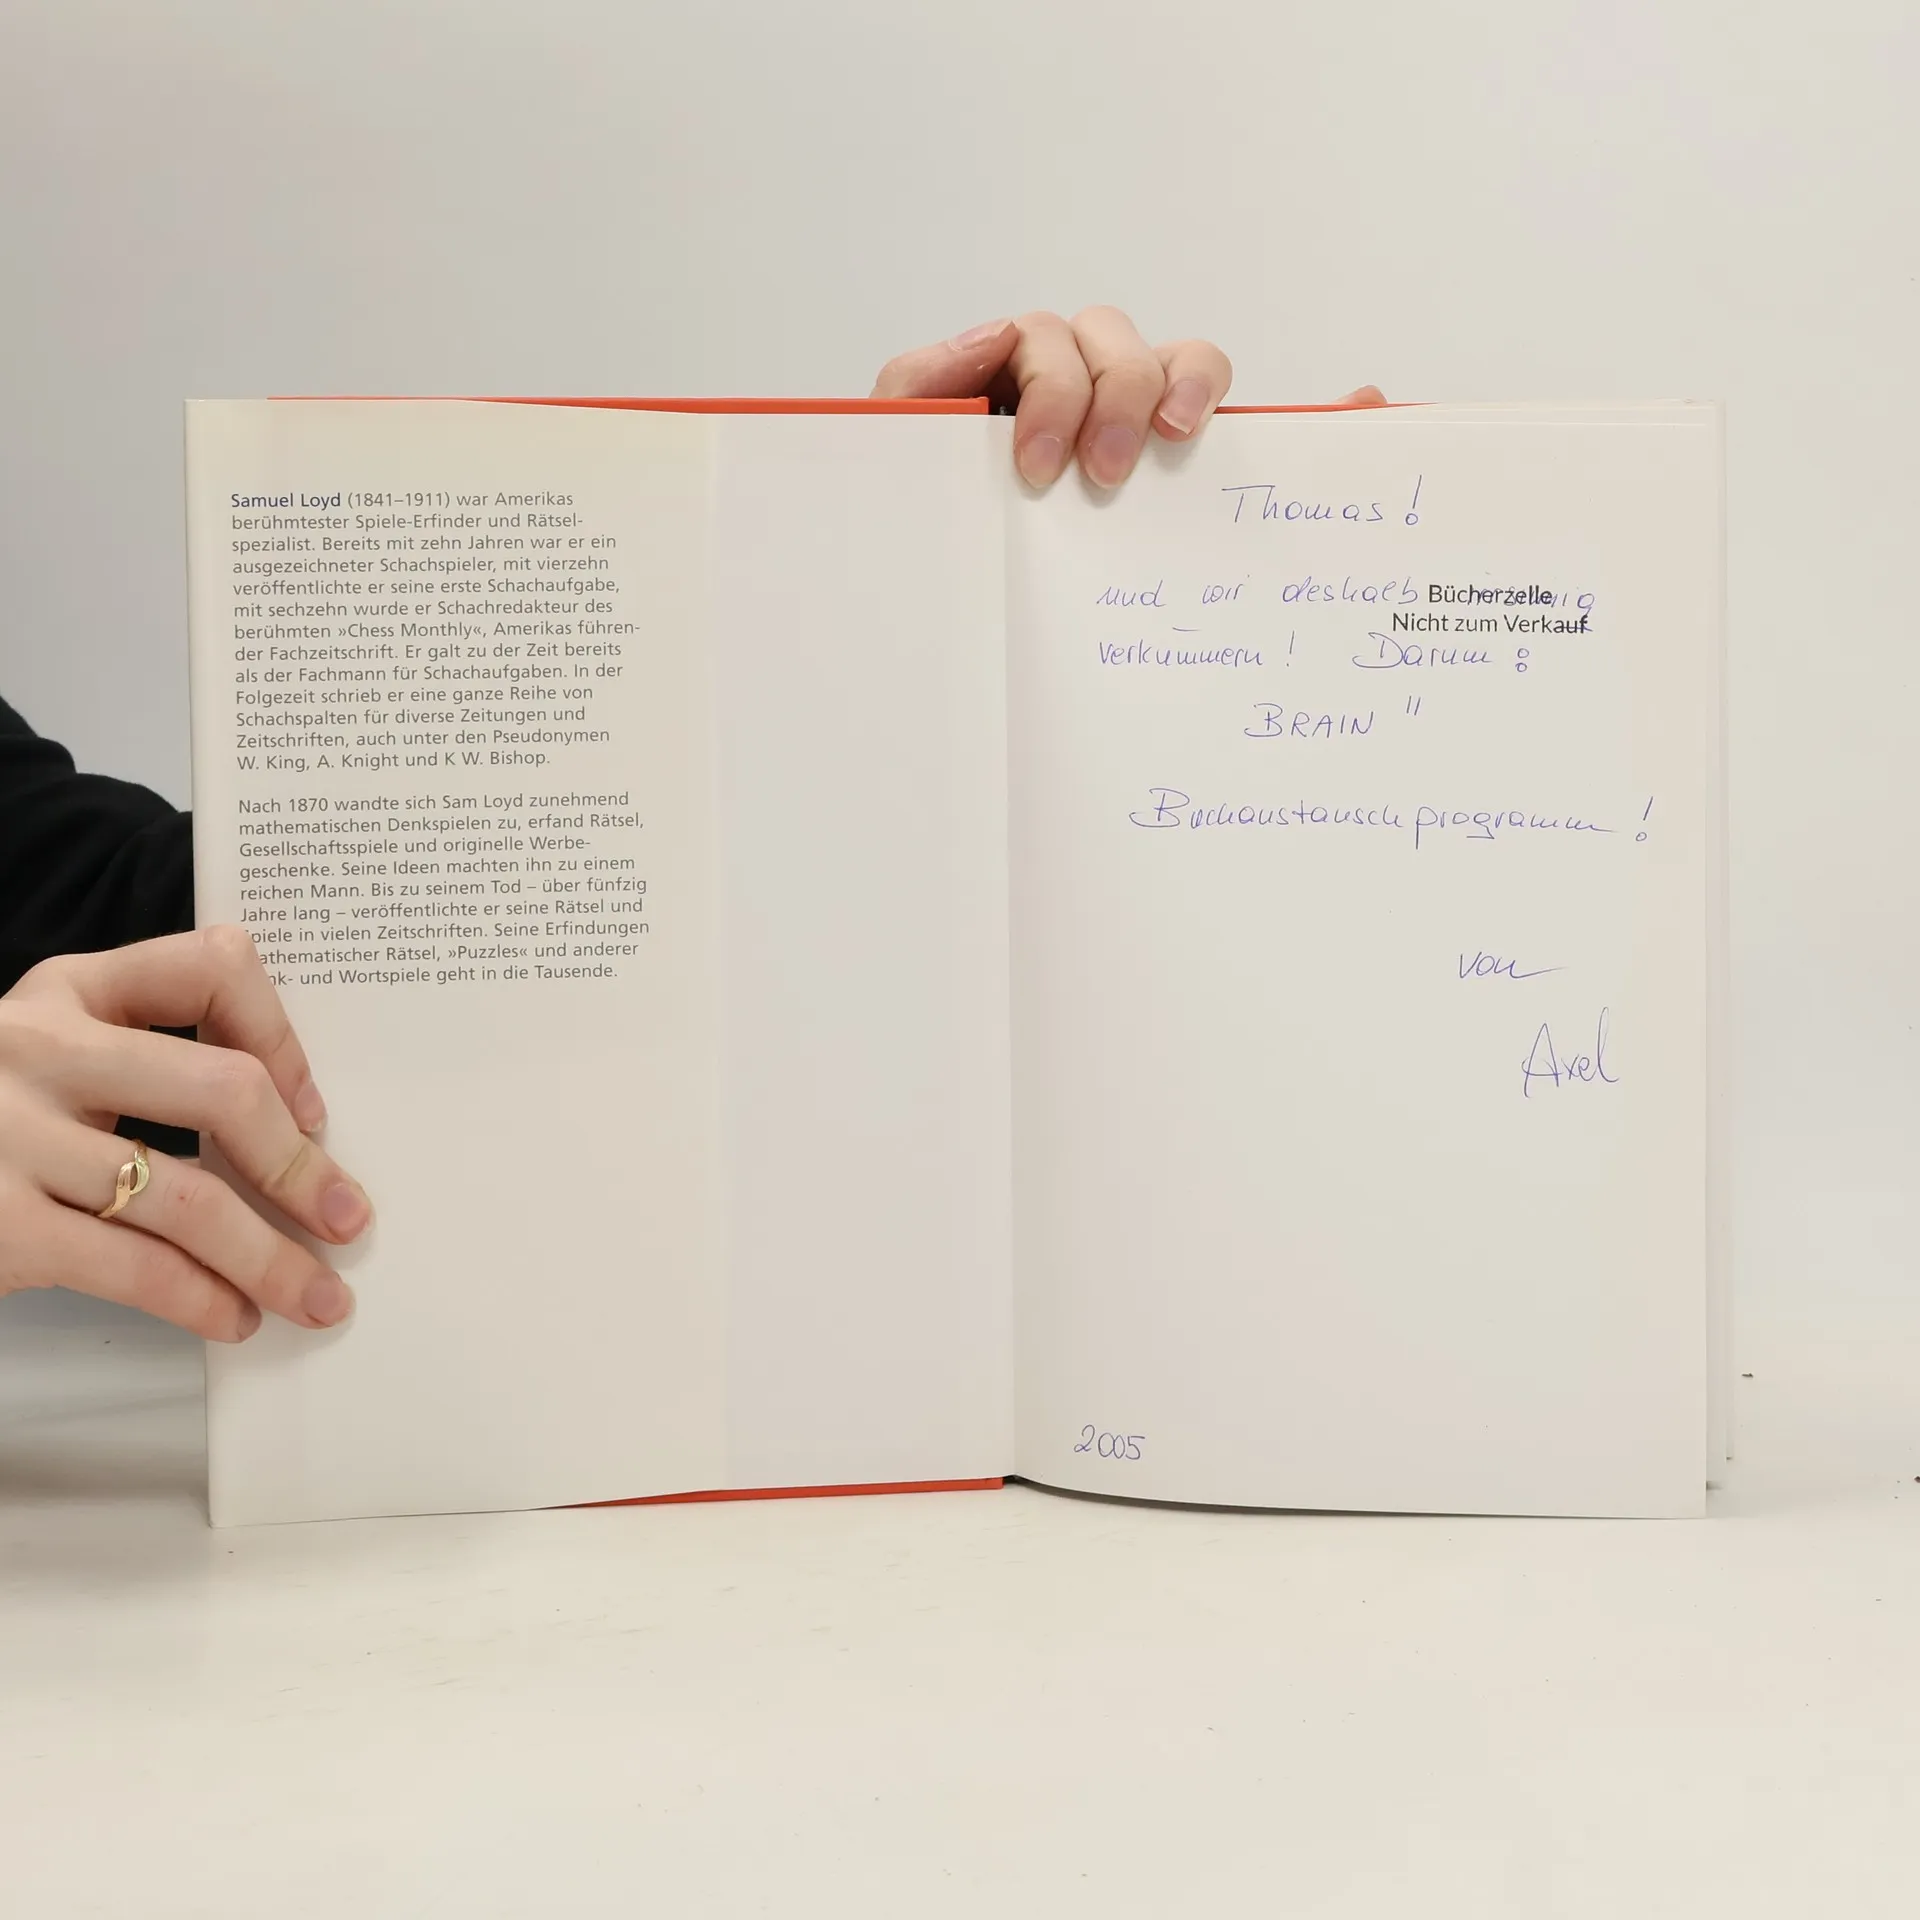 Samuel Loyd (1841–1911) war Amerikas
berühmtester Spiele-Erfinder und Rätsel-
spezialist. Bereits mit zehn Jahren war er ein
ausgezeichneter Schachspieler, mit vierzehn
veröffentlichte er seine erste Schachaufgabe,
mit sechzehn wurde er Schachredakteur des
berühmten »Chess Monthly«, Amerikas führen-
der Fachzeitschrift. Er galt zu der Zeit bereits
als der Fachmann für Schachaufgaben. In der
Folgezeit schrieb er eine ganze Reihe von
Schachspalten für diverse Zeitungen und
Zeitschriften, auch unter den Pseudonymen
W. King, A. Knight und K W. Bishop.
Nach 1870 wandte sich Sam Loyd zunehmend
mathematischen Denkspielen zu, erfand Rätsel,
Gesellschaftsspiele und originelle Werbe-
geschenke. Seine Ideen machten ihn zu einem
reichen Mann. Bis zu seinem Tod – über fünfzig
Jahre lang – veröffentlichte er seine Rätsel und
piele in vielen Zeitschriften. Seine Erfindungen
athematischer Rätsel, »Puzzles« und anderer
nk- und Wortspiele geht in die Tausende.
Thomas!
und wir deshalb
Bücherzelle
Nicht zum Verkauf
verkümmern! Darum:
BRAIN"
Buchaustauschprogramm!
von
Axel
2005